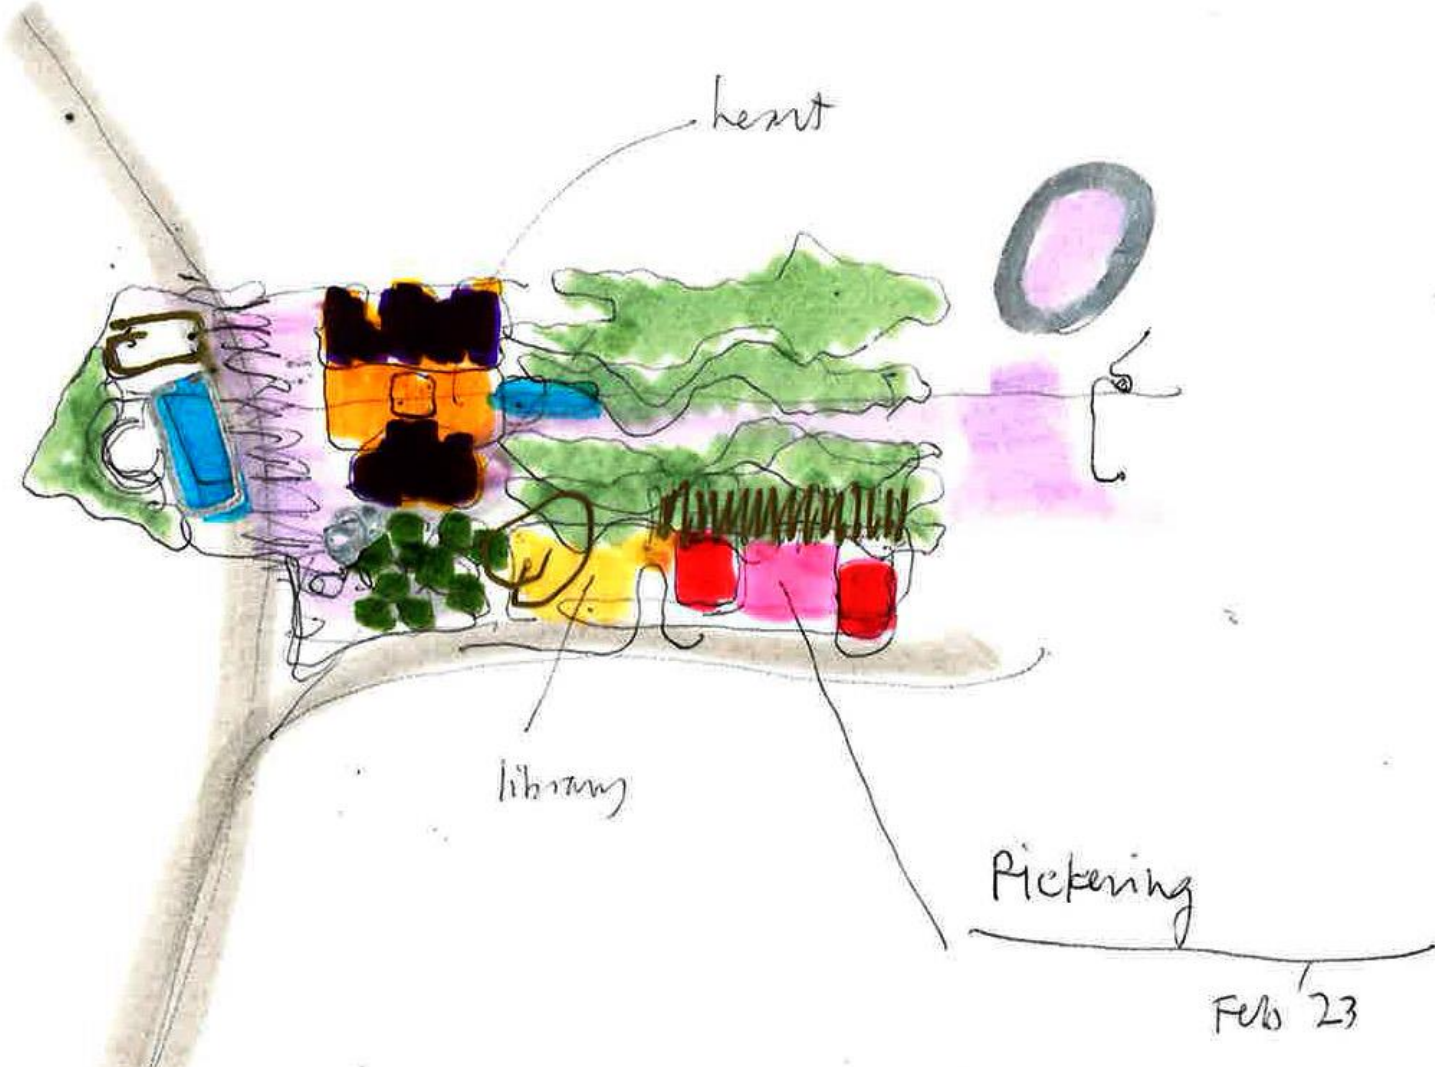 heart
library
Pickering
Feb '23